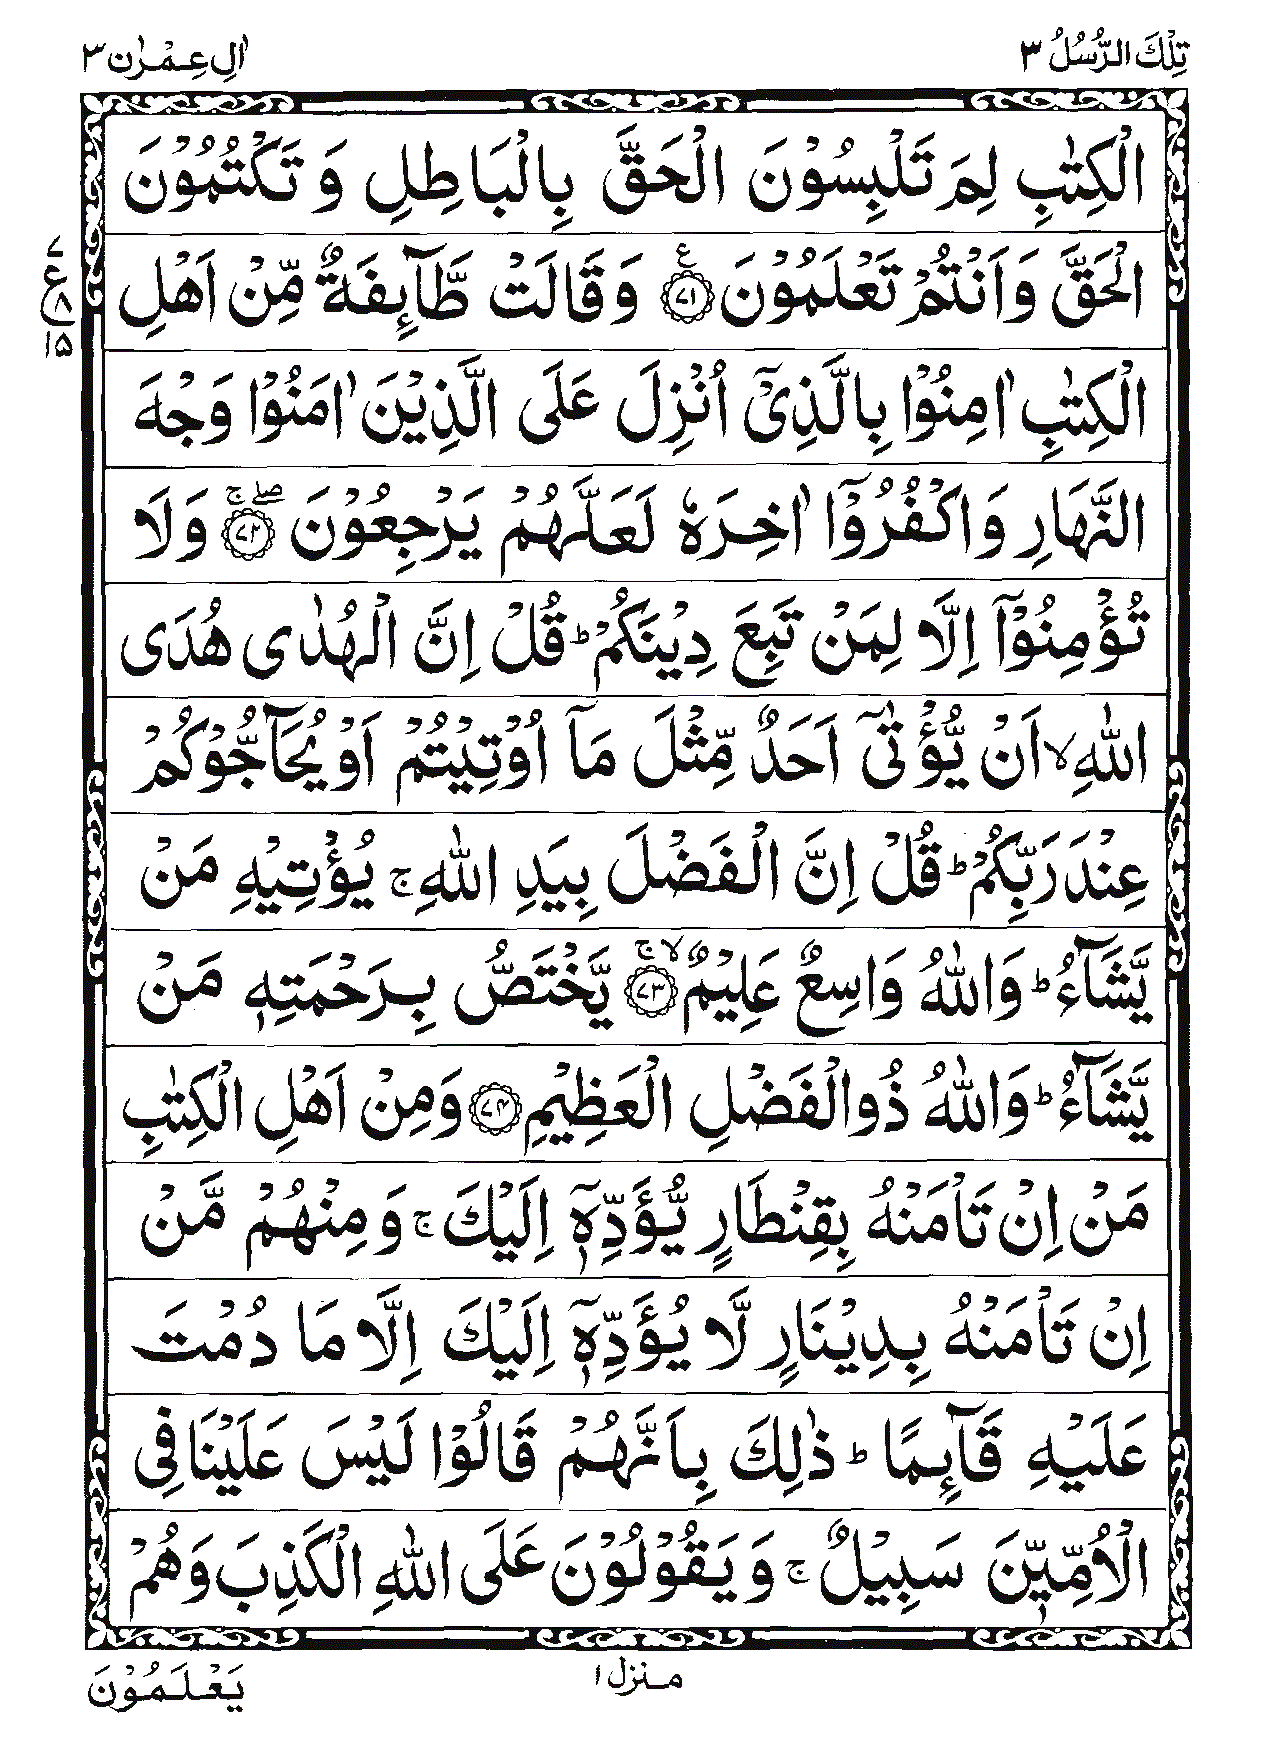 تِلْكَ الرُّسُلُ ٣
اٰلِ عِمْرٰن ٣
الْكِتٰبِ لِمَ تَلْبِسُوْنَ الْحَقَّ بِالْبَاطِلِ وَ تَكْتُمُوْنَ
الْحَقَّ وَ اَنْتُمْ تَعْلَمُوْنَ ﴿٧١﴾ ع وَ قَالَتْ طَّآىِٕفَةٌ مِّنْ اَهْلِ
٧
ع
٨
١٥
الْكِتٰبِ اٰمِنُوْا بِالَّذِيْۤ اُنْزِلَ عَلَى الَّذِيْنَ اٰمَنُوْا وَجْهَ
النَّهَارِ وَ اكْفُرُوْۤا اٰخِرَهٗ لَعَلَّهُمْ يَرْجِعُوْنَ ﴿٧٢﴾ صلے ج وَ لَا
تُؤْمِنُوْۤا اِلَّا لِمَنْ تَبِعَ دِيْنَكُمْ ؕ قُلْ اِنَّ الْهُدٰى هُدَى
اللّٰهِ ۙ اَنْ يُّؤْتٰۤى اَحَدٌ مِّثْلَ مَاۤ اُوْتِيْتُمْ اَوْ يُحَآجُّوْكُمْ
عِنْدَ رَبِّكُمْ ؕ قُلْ اِنَّ الْفَضْلَ بِيَدِ اللّٰهِ ۚ يُؤْتِيْهِ مَنْ
يَّشَآءُ ؕ وَ اللّٰهُ وَاسِعٌ عَلِيْمٌ ﴿٧٣﴾ لا ج يَّخْتَصُّ بِرَحْمَتِهٖ مَنْ
يَّشَآءُ ؕ وَ اللّٰهُ ذُو الْفَضْلِ الْعَظِيْمِ ﴿٧٤﴾ وَ مِنْ اَهْلِ الْكِتٰبِ
مَنْ اِنْ تَاْمَنْهُ بِقِنْطَارٍ يُّؤَدِّهٖۤ اِلَيْكَ ۚ وَ مِنْهُمْ مَّنْ
اِنْ تَاْمَنْهُ بِدِيْنَارٍ لَّا يُؤَدِّهٖۤ اِلَيْكَ اِلَّا مَا دُمْتَ
عَلَيْهِ قَآىِٕمًا ؕ ذٰلِكَ بِاَنَّهُمْ قَالُوْا لَيْسَ عَلَيْنَا فِي
الْاُمِّيّٖنَ سَبِيْلٌ ۚ وَ يَقُوْلُوْنَ عَلَى اللّٰهِ الْكَذِبَ وَ هُمْ
منزل ١
يَعْلَمُوْنَ